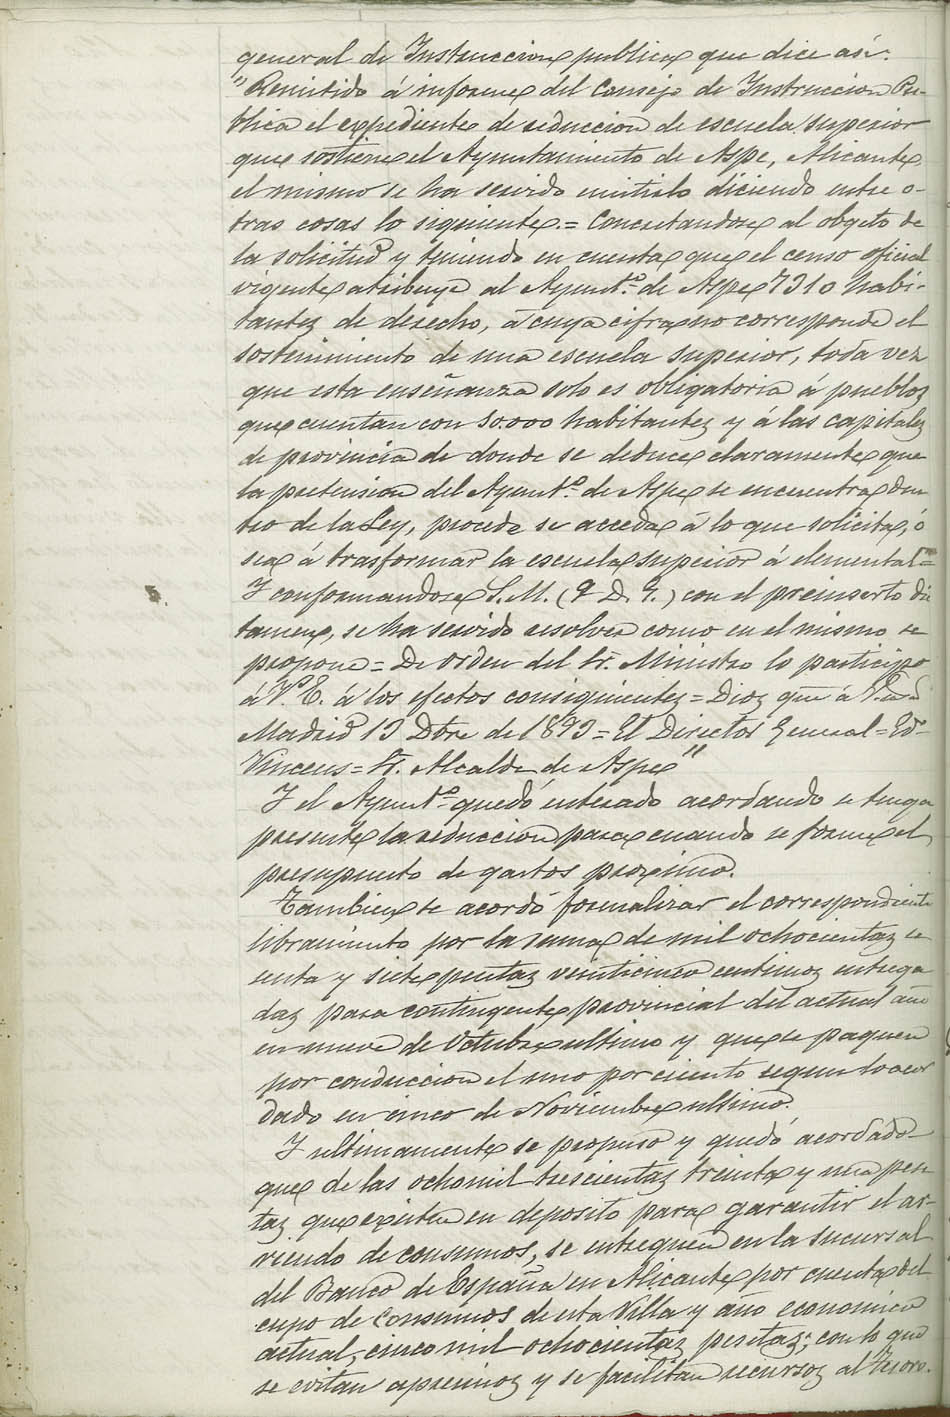 general de Instruccion publica que dice asi:
"Remitido á informe del Consejo de Instruccion Pu-
blica el expediente de reduccion de escuela superior
que sostiene el Ayuntamiento de Aspe, Alicante,
el mismo se ha servido emitirlo diciendo entre o-
tras cosas lo siguiente.= Concretandose al objeto de
la solicitud y teniendo en cuenta que el censo oficial
vigente atribuye al Ayuntº. de Aspe 7310 habi-
tantes de derecho, á cuya cifra no corresponde el
sostenimiento de una escuela superior, toda vez
que esta enseñanza solo es obligatoria á pueblos
que cuentan con 10.000 habitantes y á las capitales
de provincia de donde se deduce claramente que
la pretension del Ayuntº. de Aspe se encuentra den
tro de la Ley, procede se acceda á lo que solicita, ó
sea á trasformar la escuela superior á elemental"=
Y conformandose S.M. (Q. D. G.) con el preinserto dic
tamen, se ha servido resolver como en el mismo se
propone = De orden del Sr. Ministro lo participo
á V. E. á los efectos consiguientes = Dios gue á
Madrid 13 Dbre de 1893 = El Director General = Edº
Vincens = Sr. Alcalde de Aspe"
Y el Ayuntº. quedó enterado acordando se tenga
presente la reduccion para cuando se forme el
presupuesto de gastos proximo.
Tambien se acordó formalizar el correspondiente
libramiento por la suma de mil ochocientas se
senta y siete pesetas veinticinco centimos entrega
das para contingente provincial del actual año
en nueve de Octubre ultimo y que se paguen
por conduccion el uno por ciento segun lo acor
dado en cinco de Noviembre ultimo.
Y ultimamente se propuso y quedó acordado
que de las ocho mil trescientas treinta y una pese
tas que existen en deposito para garantir el ar-
riendo de consumos, se entreguen en la sucursal
del Banco de España en Alicante por cuenta del
cupo de Consumos de esta Villa y año economico
actual, cinco mil ochocientas pesetas; con lo que
se evitan apremios y se facilitan recursos al Tesoro.